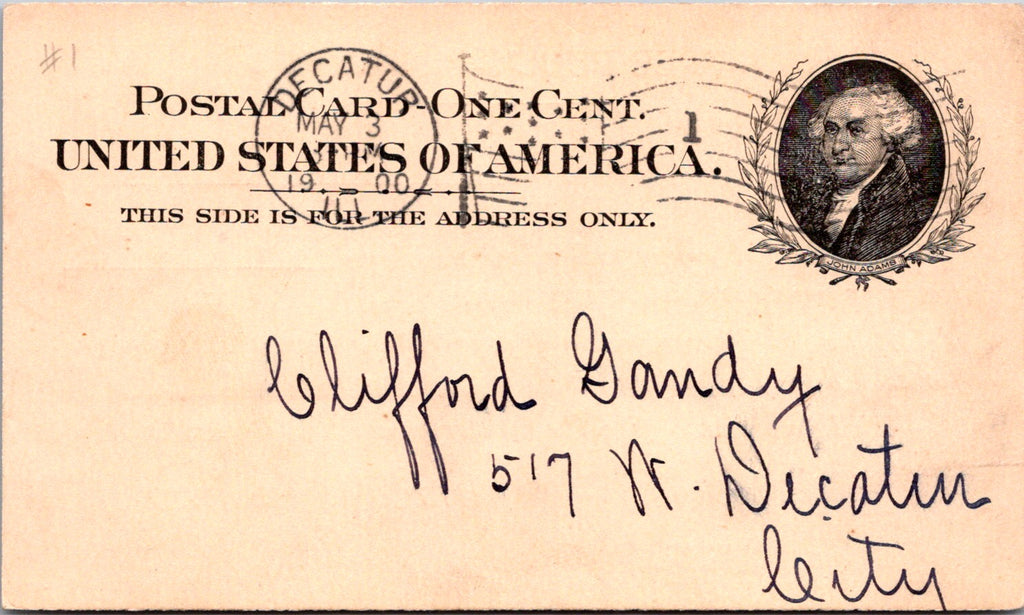 #1
DECATUR
MAY 3
1900
ILL
1
POSTAL CARD-ONE CENT.
UNITED STATES OF AMERICA.
THIS SIDE IS FOR THE ADDRESS ONLY.
JOHN ADAMS
Clifford Gandy
517 W. Decatur
City